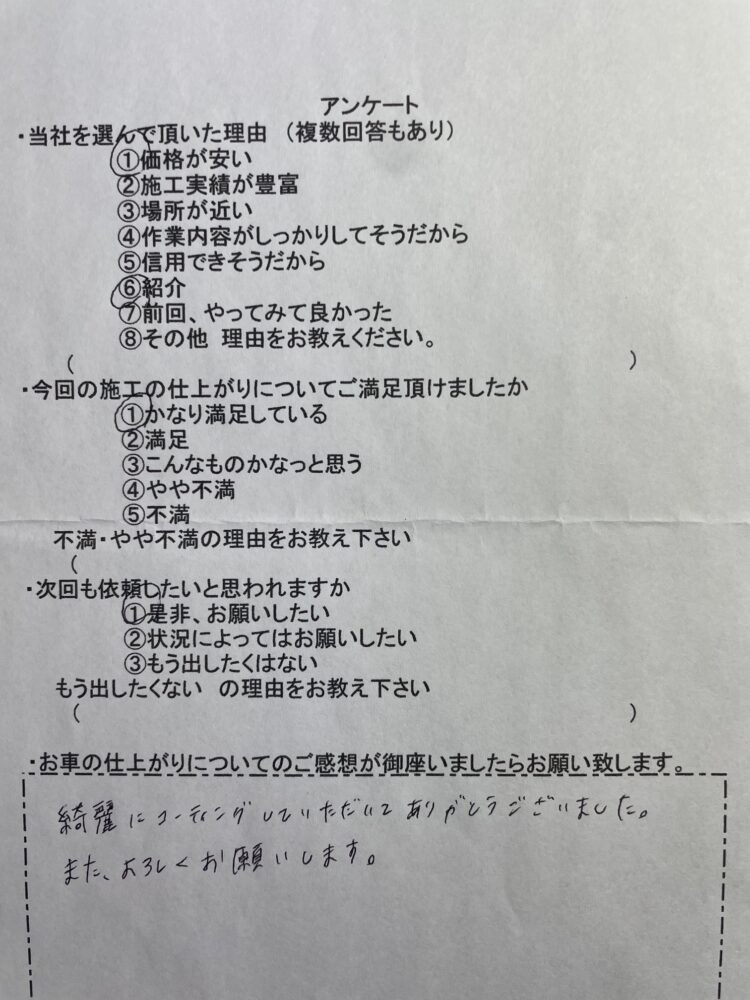 アンケート
・当社を選んで頂いた理由　（複数回答もあり）
①価格が安い
②施工実績が豊富
③場所が近い
④作業内容がしっかりしてそうだから
⑤信用できそうだから
⑥紹介
⑦前回、やってみて良かった
⑧その他　理由をお教えください。
（　）
・今回の施工の仕上がりについてご満足頂けましたか
①かなり満足している
②満足
③こんなものかなっと思う
④やや不満
⑤不満
不満・やや不満の理由をお教え下さい
（
・次回も依頼したいと思われますか
①是非、お願いしたい
②状況によってはお願いしたい
③もう出したくはない
もう出したくない　の理由をお教え下さい
（　）
・お車の仕上がりについてのご感想が御座いましたらお願い致します。
綺麗にコーティングしていただいてありがとうございました。
また、よろしくお願いします。